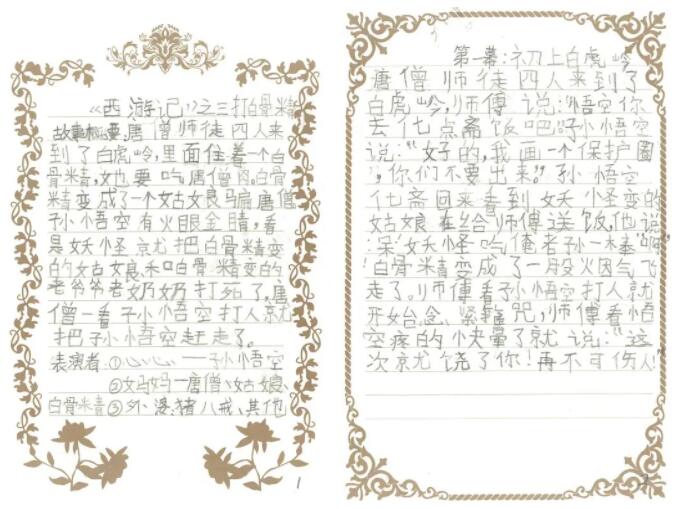 《西游记》之三打白骨精
故事概要:唐僧师徒四人来
到了白虎岭,里面住着一个白
骨精,她也要吃唐僧肉。白骨
精变成了一个姑娘骗唐僧
孙悟空有火眼金睛,看
是妖怪就把白骨精变
的姑娘和白骨精变的
老爷爷老奶奶打死了,唐
僧一看孙悟空打人就
把孙悟空赶走了。
表演者:①心心——孙悟空
②妈妈—唐僧、姑娘、
白骨精③外婆:猪八戒、其他
1
第一幕:初上白虎岭
唐僧师徒四人来到了
白虎岭,师傅说:悟空你
去化点斋饭吧!孙悟空
说:“好的,我画一个保护圈
,你们不要出来。”孙悟空
化斋回来看到妖怪变的
姑娘在给师傅送饭,他说
:呆!妖怪吃俺老孙一棒“啊”
!白骨精变成了一股火因气飞
走了。师傅看孙悟空打人就
开始念、紧箍咒,师傅看悟
空疼的快晕了就说:“这
次就饶了你!再不可伤人!”